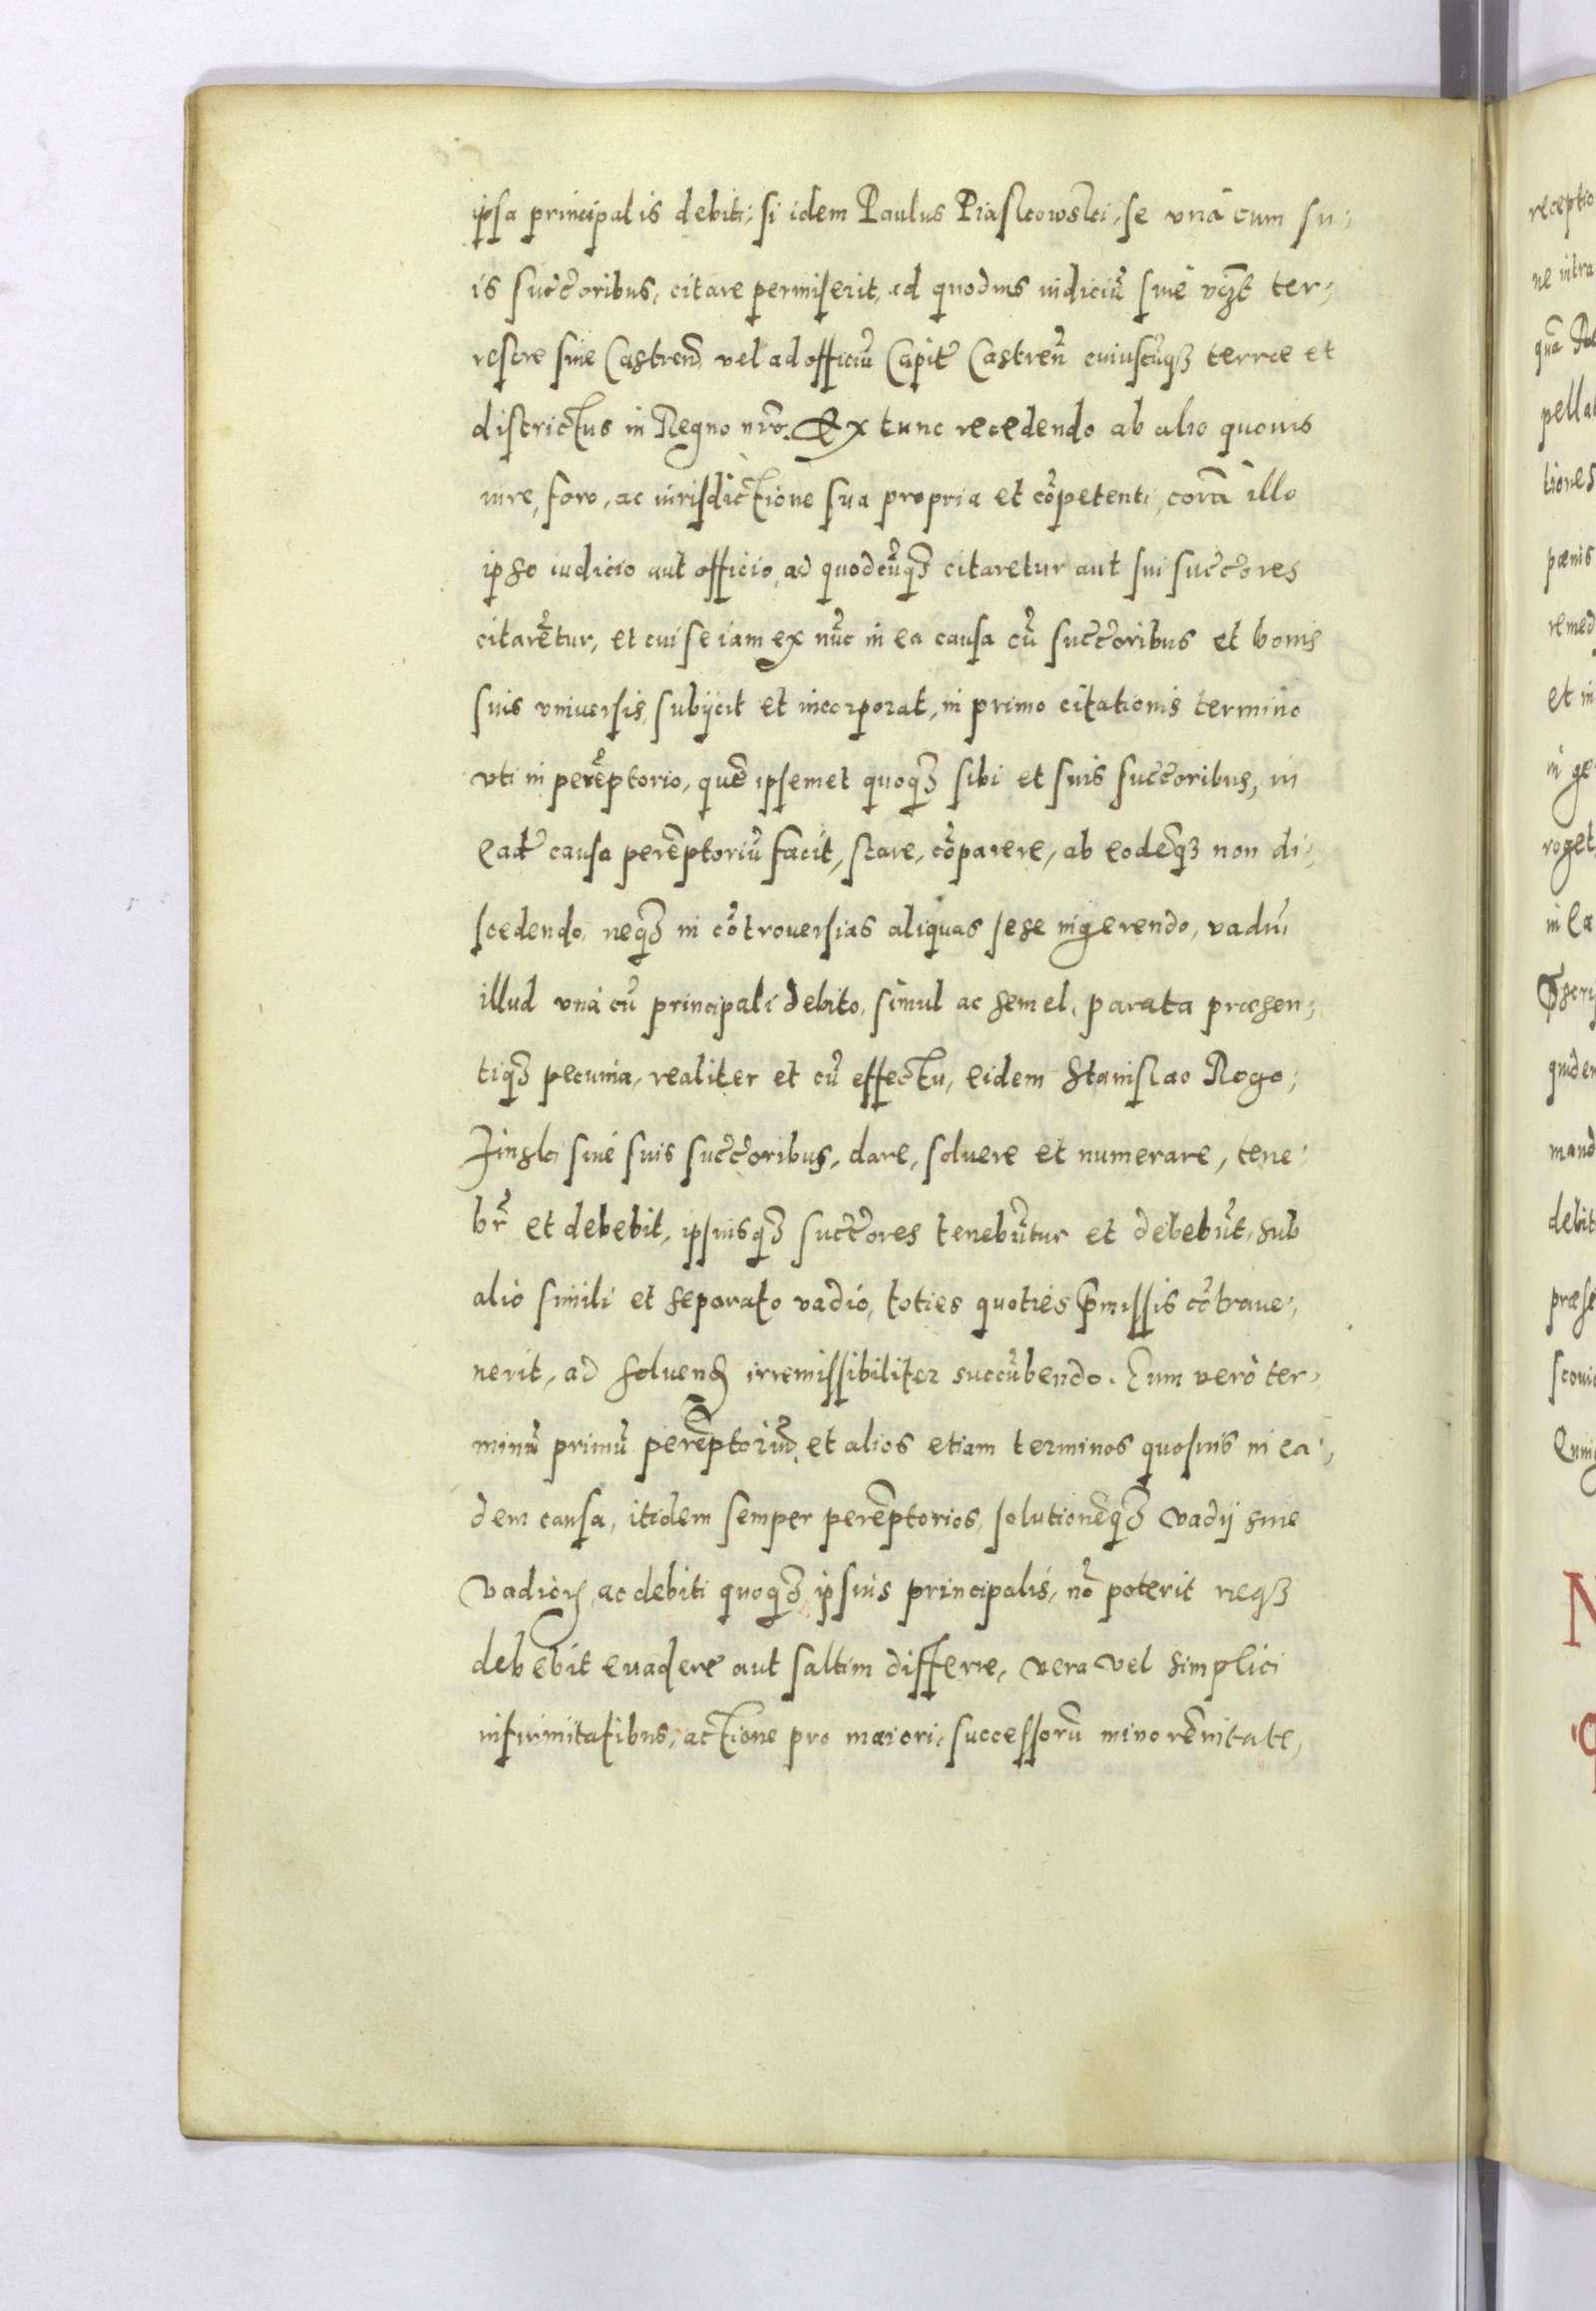 ipsa principalis debiti; si idem Paulus Piaskowski, se vnà cum su;
is succ̃oribus, citare permiserit, ad quoduis iudiciũ siue vçt ter;
restre siue Castren̄ vel ad officiũ Capit̃ Castreñ cuiuscũqȝ terrae et
districtus in Regno nr̃o. Ex tunc recedendo ab alio quouis
iure, foro, ac iurisdictione sua propria et cõpetenti, corã illo
ipso iudicio aut officio, ad quodcũqȝ citaretur aut sui succ̃ores
citarẽtur, et cui se iam ex nũc in ea causa cũ succ̃oribus et bonis
suis vniuersis, subijcit et incorporat, in primo citationis termino
vti in perẽptorio, quẽ ipsemet quoqȝ sibi et suis succ̃oribus, in
ead̃ causa perẽptoriũ facit, stare, cõparere, ab eodẽqȝ non di;
scedendo, neqȝ in cõtrouersias aliquas sese ingerendo, vadiũ
illud vnà cũ principali debito, simul ac semel, parata praesen;
tiqȝ pecunia, realiter et cũ effectu, eidem Stanislao Rogo;
zinski siue suis succ̃oribus, dare, soluere et numerare, tene;
br̃ et debebit, ipsiusqȝ succ̃ores tenebũtur et debebũt, sub
alio simili et separato vadio, toties quoties p̃missis cõtraue;
nerit, ad soluenḍ irremissibiliter succũbendo. Eum verò ter;
minũ primũ perẽptoriũ, et alios etiam terminos quosuis in ea;
dem causa, itidem semper perẽptorios, solutionẽqȝ vadij siue
vadioꝝ, ac debiti quoqȝ ipsius principalis, nõ poterit neqȝ
debebit euadere aut saltim differre, vera vel simplici
infirmitatibus, actione pro maiori, successorũ minorẽnitate,
receptio
ne intra
pella
tiones
pœnis
remed
et in
in ge
roget
in ea
quidem
mand
debit
praese